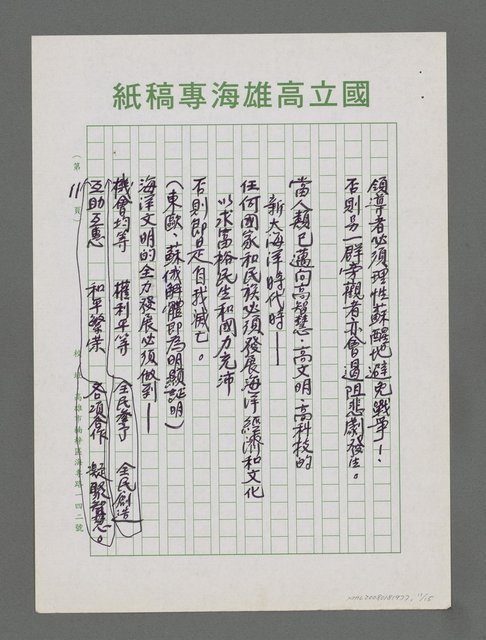 國立高雄海專稿紙
領導者必須理性蘇醒地避免戰爭！
否則另一群旁觀者亦會遏阻悲劇發生。
當人類已邁向高智慧、高文明、高科技的
新大海洋時代時——
任何國家和民族必須發展海洋經濟和文化
以求富裕民生和國力充沛
否則即是自我滅亡。
（東歐、蘇俄解體即為明顯証明）
海洋文明的全力發展必須做到——
機會均等　權利平等　全民參予　全民創造
互助互惠　和平繁榮　各項合作　凝聚智慧。
（第11頁）
校址：高雄市楠梓區海專路一四二號
NMTL20080181977, 11/15